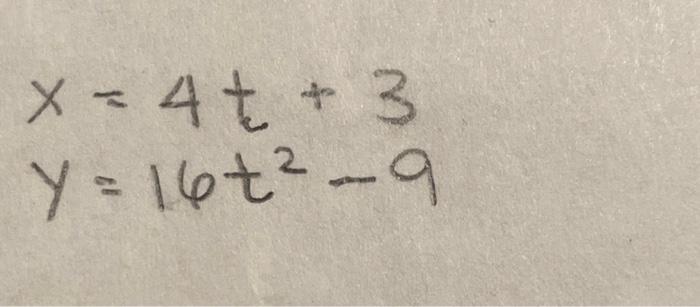 x = 4t + 3
y = 16t² - 9